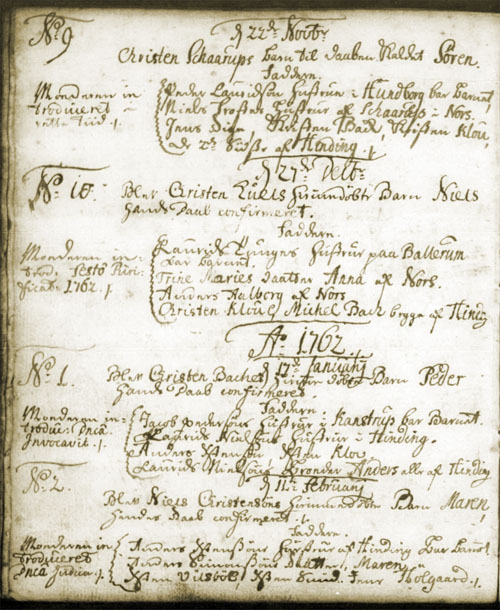 No. 9
d 22de Novbr:
Christen Schaarups barn til daaben kaldet Sören.
Faddern.
Moderen in
troduceret
rette Tiid ./.
Peder Lauridsøn hustrue i Hundborg bar barnet
Niels hustrue af Schaarup i Nors.
Jens Christen Back, Christen Klou,
af Hinding ./.
d 27de Decbr
No. 10.
Blev Christen hiemdöbte Barn Niels
hands Daab confirmeret.
Faddern.
Moderen in-
trod. Festo Puri-
ficat. 1762 ./.
Laurids hustrue paa Ballerum
bar barnet.
Trine Maries daatter Anna af Nors.
Anders Aalborg af Nors
Christen Klou & Michel Back begge af Hinding
Ao 1762.
d 17de Januarij
No. 1.
Blev Christen Baches hiemme döbte Barn Peder
hands Daab confirmeret.
Faddern
Moderen in-
troduc. Dnca
Invocavit ./.
Jacob Pedersøns hustrue i Kanstrup bar Barnet.
Laurids Nielsøns hustrue i Hinding.
Anders Klou
Laurids Nielsøns Anders alle af Hinding
d 11te Februarij
No. 2.
Blev Niels Christensöns hiemmedöbte Barn Maren,
hendes Daab confirmeret ./.
Faddern.
Moderen in
troduceret
Dnca Judica ./.
Anders hustrue af Hinding bar Barnet
Anders Simonsøns Datter, Maren,
Vilsböl, Jens Holgaard ./.